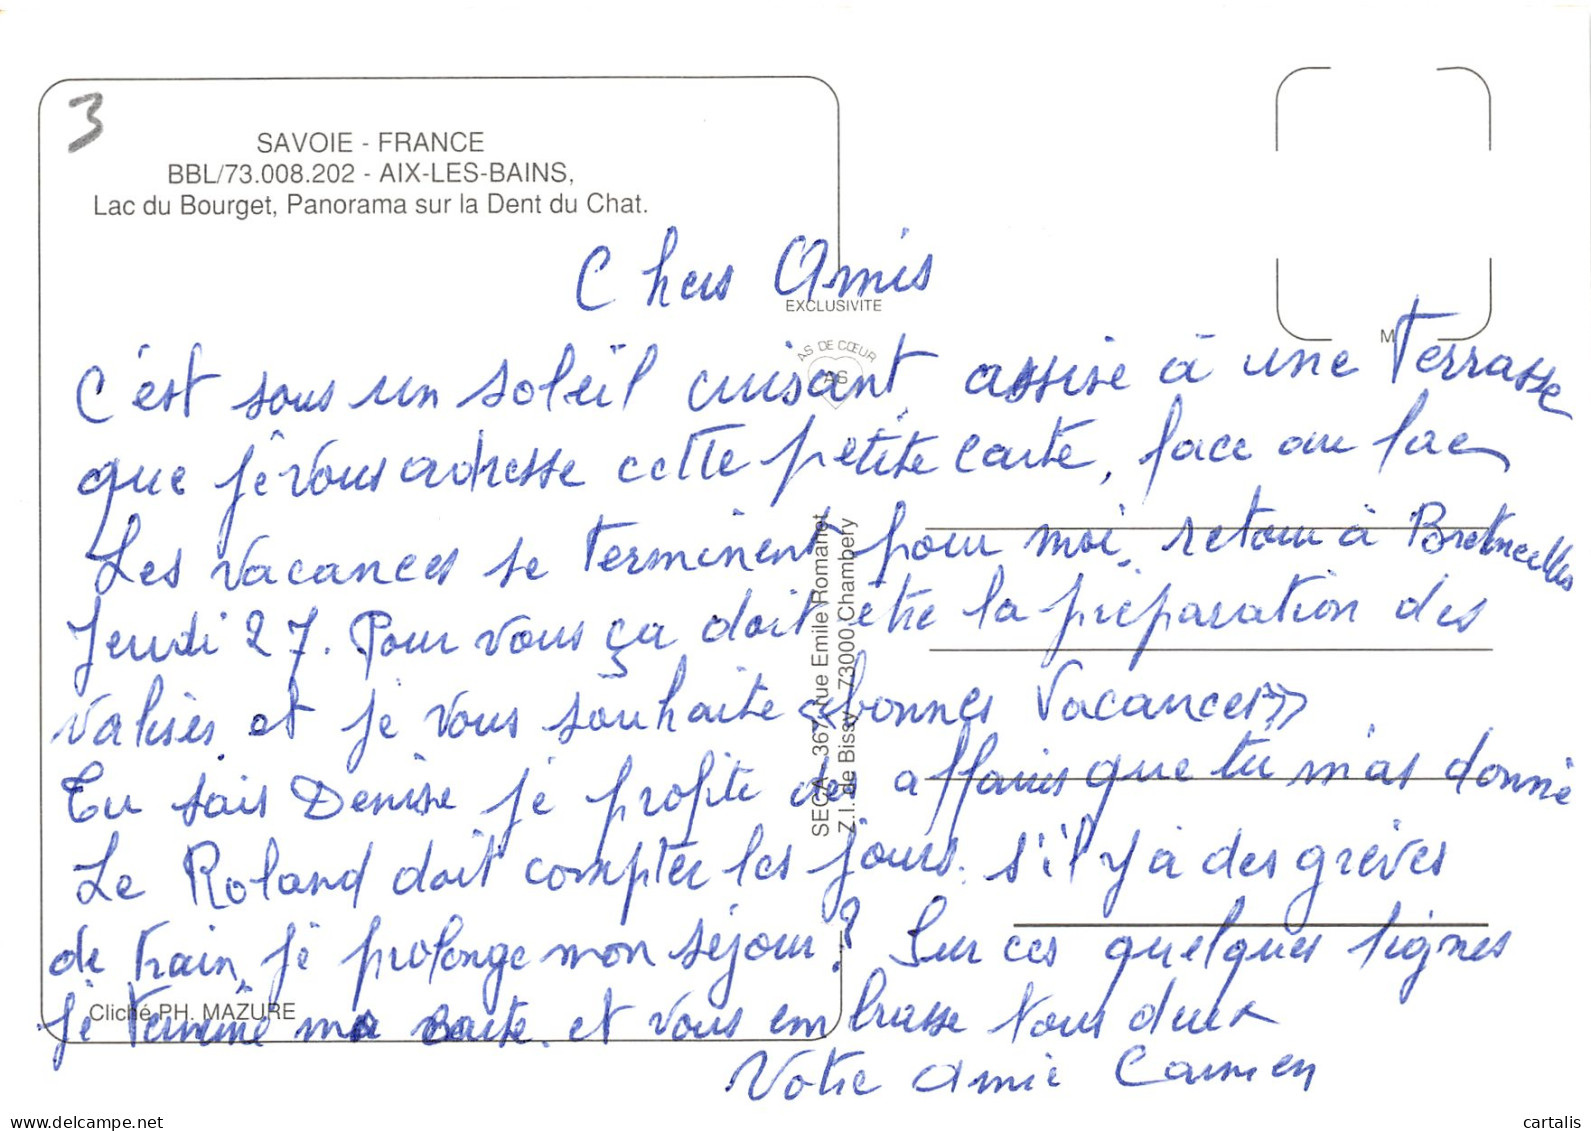 3
SAVOIE - FRANCE
BBL/73.008.202 - AIX-LES-BAINS,
Lac du Bourget, Panorama sur la Dent du Chat.
M
Chers Amis
EXCLUSIVITE
AS DE CŒUR
AS
C'est sous un soleil cuisant assise à une Terrasse
que je vous adresse cette petite carte, face au lac
Les vacances se terminent pour moi, retour à Bretoncelles
Jeudi 27. Pour vous ça doit être la préparation des
valises et je vous souhaite «bonnes Vacances»
Tu sais Denise je profite des affaires que tu m'as donné
Le Roland doit compter les jours. s'il y à des grèves
de train je prolonge mon séjour? Sur ces quelques lignes
je termine ma carte. et vous embrasse tous deux
Votre amie Carmen
SECA - 367, rue Emile Romanet
Z.I. de Bissy - 73000 Chambery
Cliché PH. MAZURE
delcampe.net
cartalis